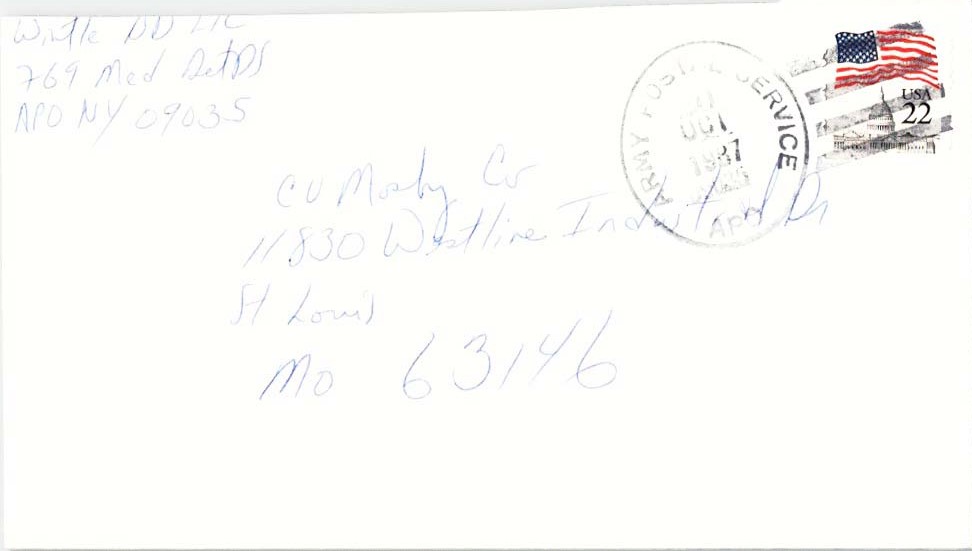 Wintle DD LTC
769 Med Det DS
APO NY 09035
USA
22
ARMY POSTAL SERVICE
OCT
1987
APO
CV Mosby Co
11830 Westline Industrial Dr
St Louis
Mo 63146